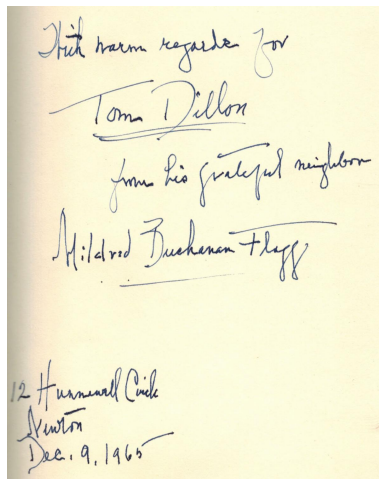 With warm regards for
Tom Dillon
from his grateful neighbor
Mildred Buchanan Flagg
12 Hunnewell Circle
Newton
Dec. 9, 1965